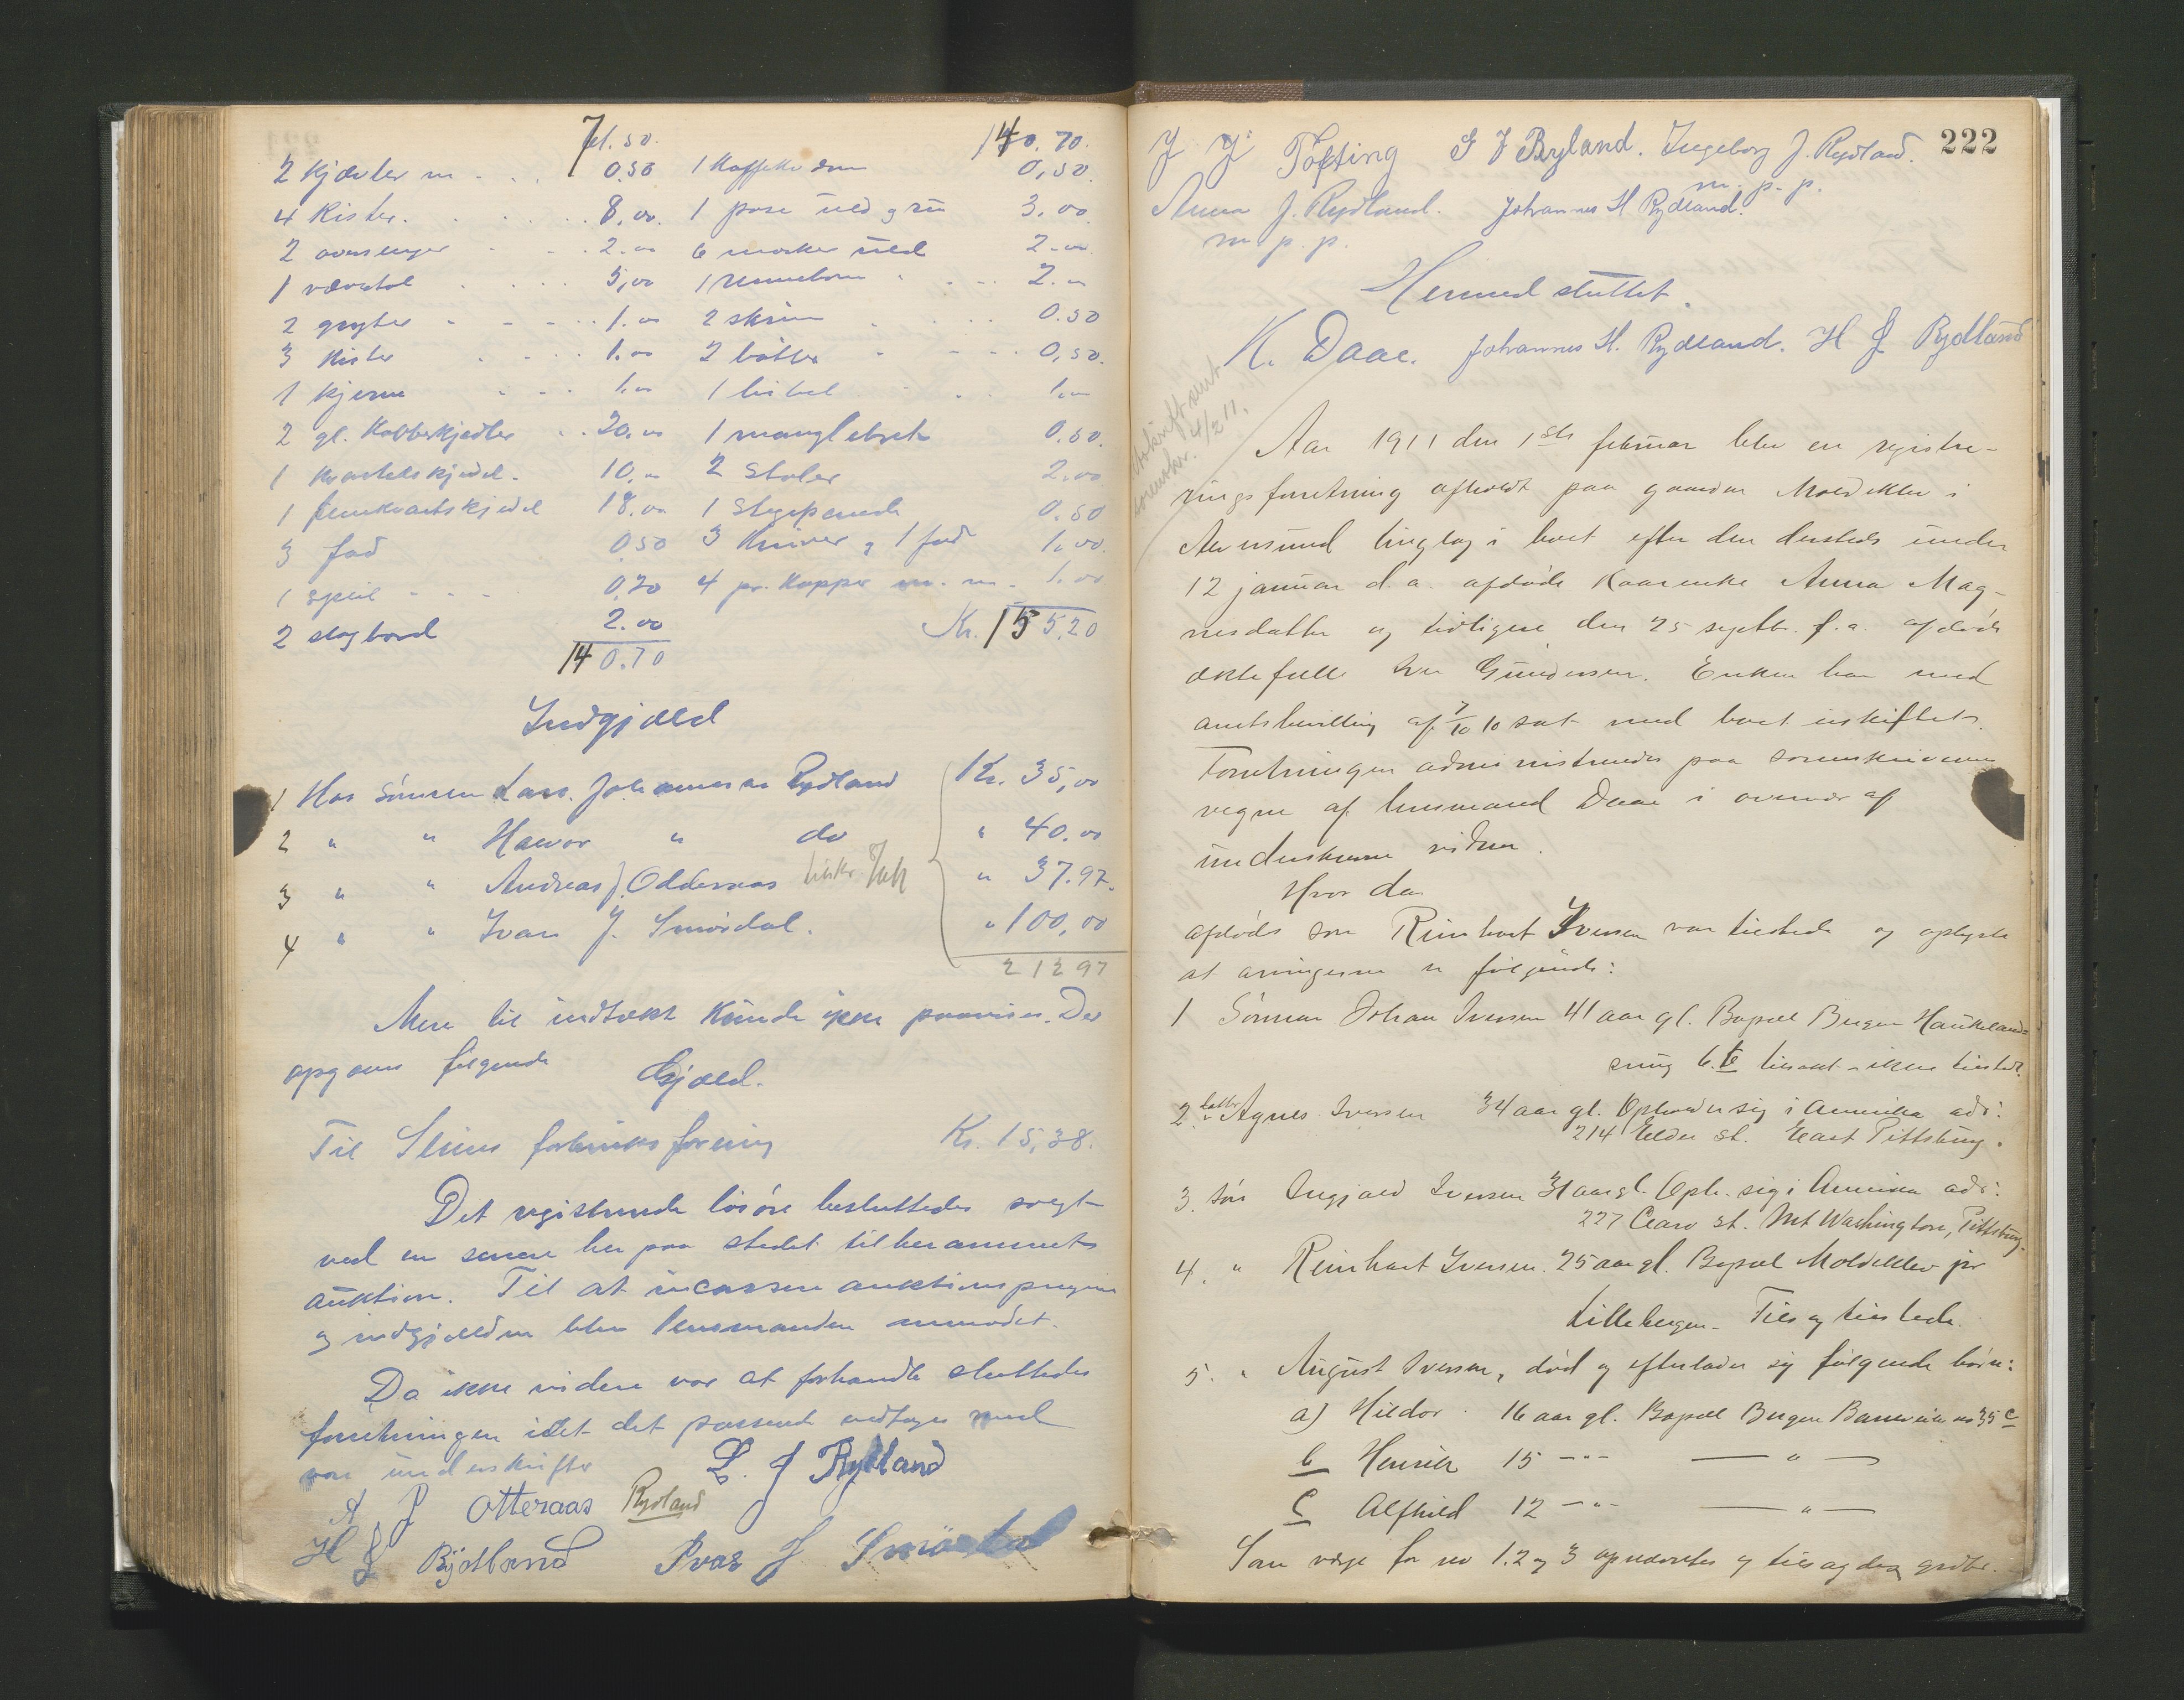 71.50. 140.70.
2 kjævler m 0.50 1 Kaffekværn 0,50.
4 Rister. 8,00. 1 pose uld og 3,00
2 2.00 6 uld 2.00
1 vævstol 5,00 1 2.
2 gryter 1.00 2 skrin 0.50
3 Kister 1.00 2 bøtter 0,50.
1 kjerne 1.00 1 bibel 1.
2 gl. Kobberkjedler 20.00 1 manglebret 0.50.
1 kjedel. 10,- 2 Stoler 2.00
1 kjedel 18.00 1 Stegepande 0.50
3 fad 0.50 3 Kniver og 1 fad 1.00.
1 speil 0,20 4 pr. Kopper m. m. 1.00
2 slagbord 2.00 Kr. 155.20
140.70
Indgjæld
1 Hos Sønnen Lars Johannesen Rydland Kr. 35,00
2 " " Haavar " do " 40.00
3 " " Andreas J. Odderaas " 37.97.
4 " " Ivar J. Smørdal. " 100,00
212 97
Mere til indtækt kunde ikke paavises. Der
opgaves følgende Gjæld.
Til Seims forbruksforening Kr. 15,38.
Det registrerede løsøre besluttedes solgt
ved en senere her paa stedet tilberammet
auktion. Til at incassere auktionspengene
og indgjælden blev lensmanden anmodet.
Da ikke videre var at forhandle sluttedes
forretningen idet det passerede vedtages med
vor underskrifter L. J Rydland
A J Otteraas Rydland
H J Rydland Ivar J Smørdal
222
J J Tofting G J Ryland. Ingeborg J. Rydland.
m. p. p.
Anna J. Rydland. Johannes H Rydland.
m. p. p.
Hermed sluttet.
K. Daae. Johannes H. Rydland. H J Rydland
4/2 11.
Aar 1911 den 1ste februar blev en registre-
ringsforretning afholdt paa gaarden Moldeklev i
Alversund tinglag i boet efter den dersteds under
12 januar d. a. afdøde Kaarenke Anna Mag-
nesdatter og tidligere den 25 septbr. f. a. afdøde
ektefelle Iver Gundersen. Enken har med
amtsbevilling af 7/10 10 sat med boet uskiftet.
Forretningen administreredes paa sorenskriverens
vegne af lensmand Daae i overvær af
underskrevne vidner.
Hvor da
afdødes søn Reinhart Iversen var tilstede og oplyste
at arvingerne er følgende:
1 Sønnen Johan Iversen 41 aar gl. Bopæl Bergen Haukelands-
6. tilsagt - ikke tilstede.
2. datter Agnes Iversen 34 aar gl. Opholder sig i Amerika adr:
214 Elder St. East Pittsburg.
3. søn Ingjald Iversen 31 aar gl. Oph. sig i Amerika adr:
227 St. Mt Washington, Pittsburg.
4. " Reinhart Iversen. 25 aar gl. Bopæl Moldeklev pr
Lillebergen. Tils og tilstede.
5. " August Iversen, død og efterlader sig følgende børn:
a) Hildor 16 aar gl. Bopæl Bergen no 35 c
b Henrik 15 -"- — " —
c Alfhild 12 -"- — " —
Som verge for no 1. 2 og 3 opnævntes og tilsagdes grdbr.